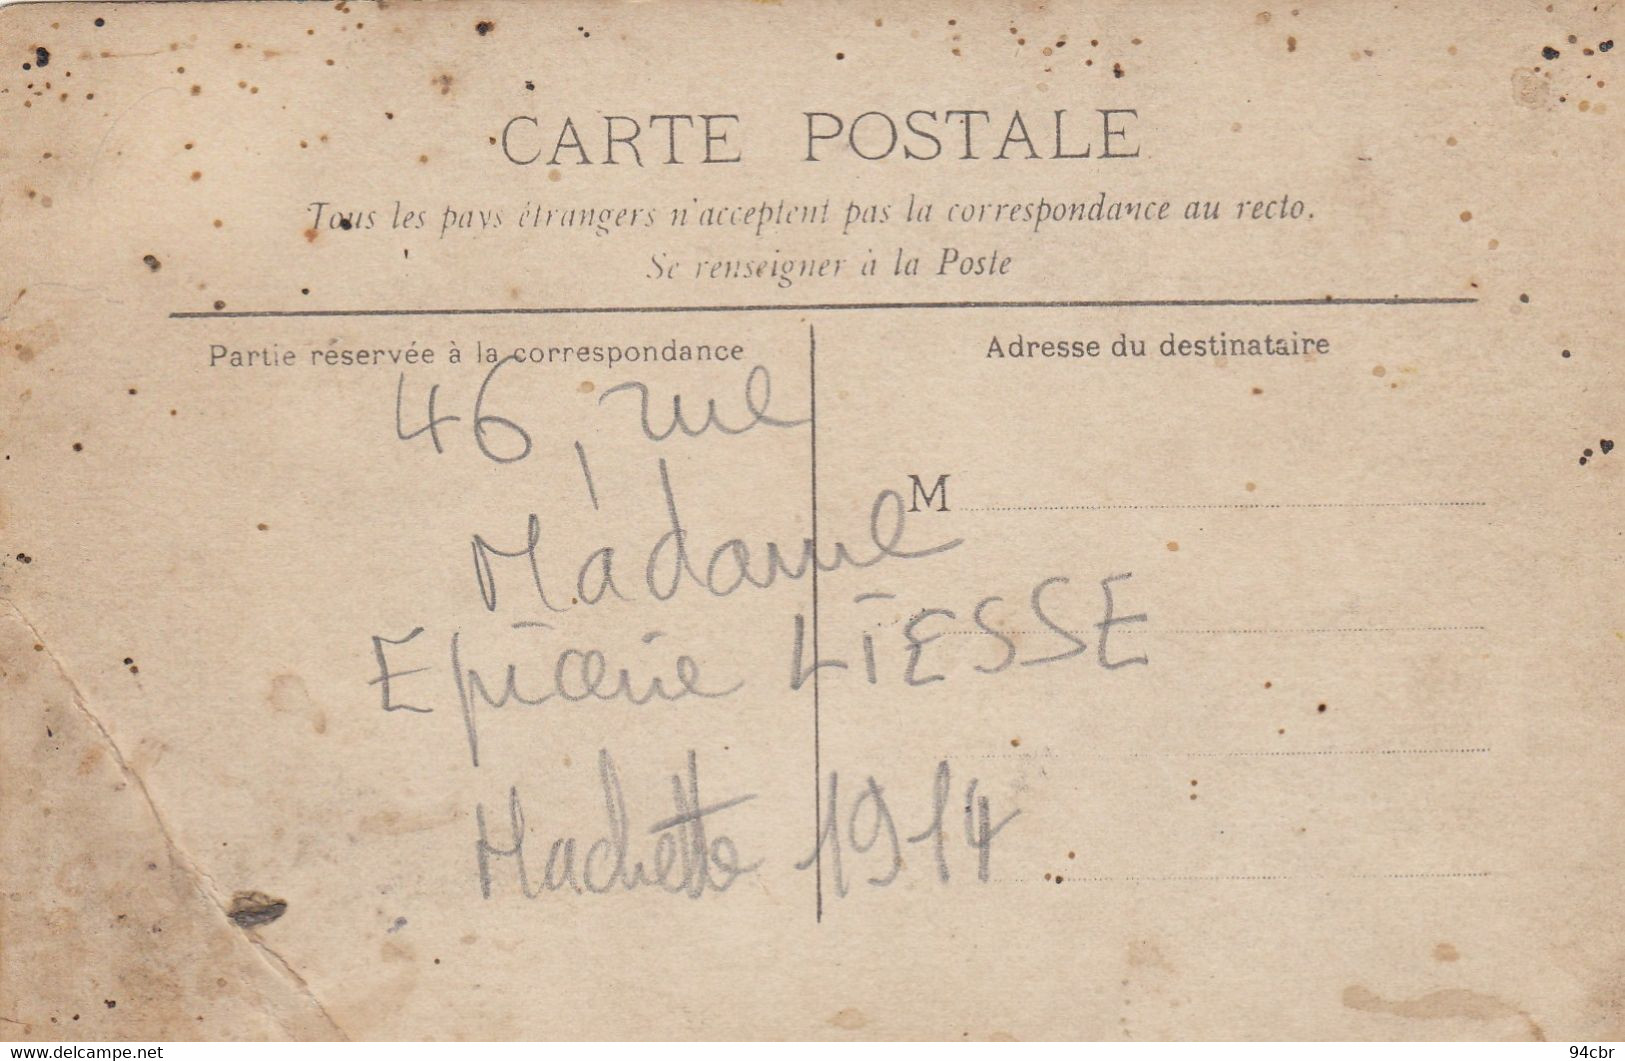 CARTE POSTALE
Tous les pays étrangers n'acceptent pas la correspondance au recto.
Se renseigner à la Poste
Partie réservée à la correspondance
Adresse du destinataire
46, rue
Madame
M
Epicerie LIESSE
Hachette 1914
www.delcampe.net
94cbr